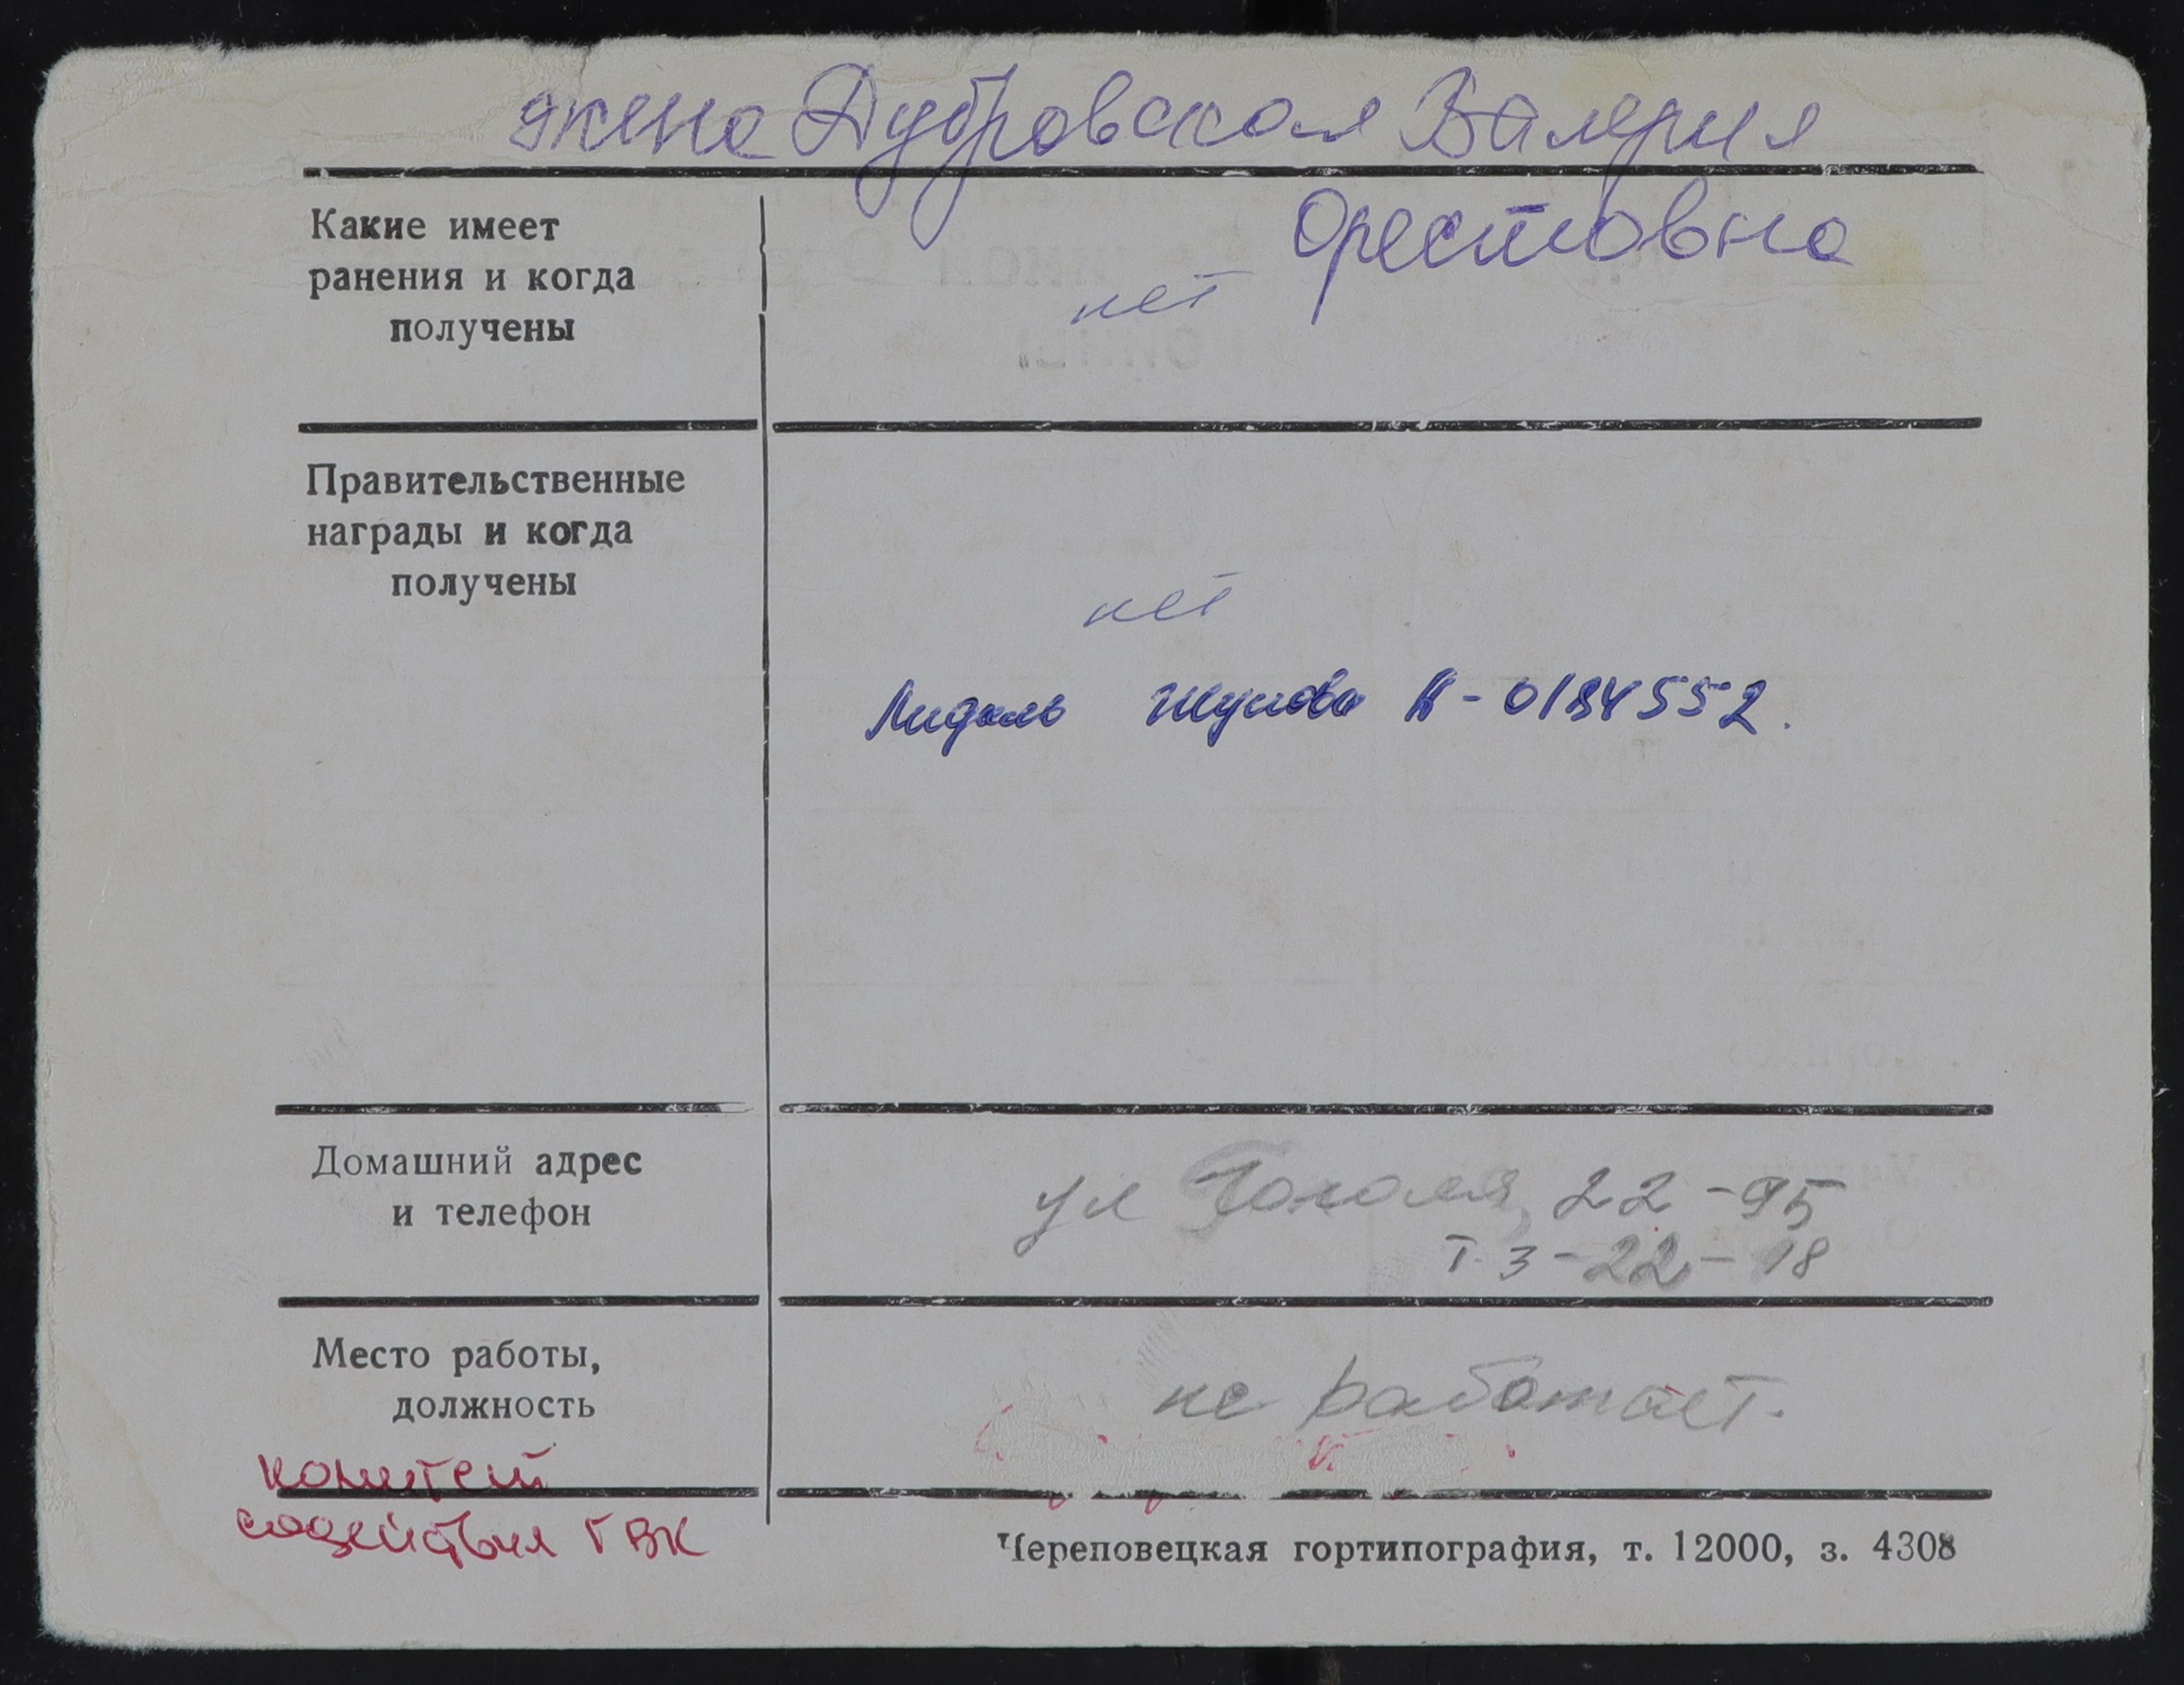 жена Дубровская Валерия
Орестовна
Какие имеет
ранения и когда
получены
нет
Правительственные
награды и когда
получены
нет
Медаль Жукова А-0184552.
Домашний адрес
и телефон
ул Гоголя, 22-95
т. 3-22-18
Место работы,
должность
не работает.
комитет
содействия ГВК
Череповецкая гортипография, т. 12000, з. 4308